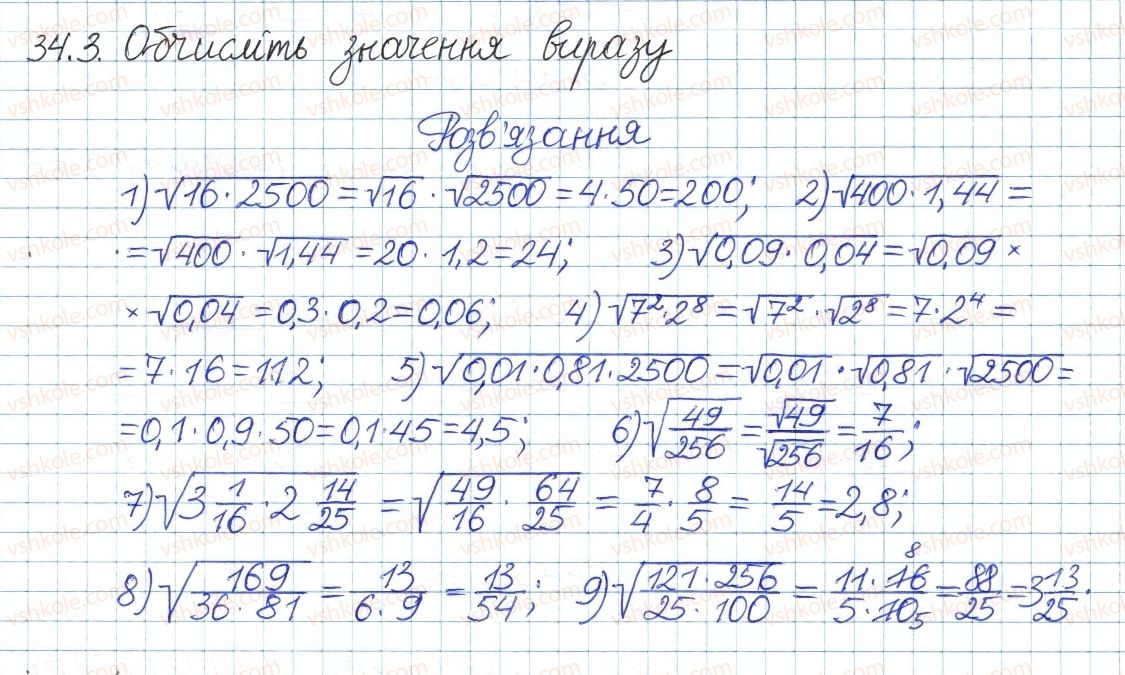 34.3. Обчисліть значення виразу
Розв'язання
1) √(16·2500) = √16 · √2500 = 4·50 = 200; 2) √(400·1,44) =
= √400 · √1,44 = 20·1,2 = 24; 3) √(0,09·0,04) = √0,09 ×
× √0,04 = 0,3·0,2 = 0,06; 4) √(7²·2⁸) = √7² · √2⁸ = 7·2⁴ =
= 7·16 = 112; 5) √(0,01·0,81·2500) = √0,01 · √0,81 · √2500 =
= 0,1·0,9·50 = 0,1·45 = 4,5; 6) √(49/256) = √49/√256 = 7/16;
7) √(3 1/16 · 2 14/25) = √(49/16 · 64/25) = 7/4 · 8/5 = 14/5 = 2,8;
8) √(169/(36·81)) = 13/(6·9) = 13/54; 9) √((121·256)/(25·100)) = (11·16 8)/(5·10 5) = 88/25 = 3 13/25.